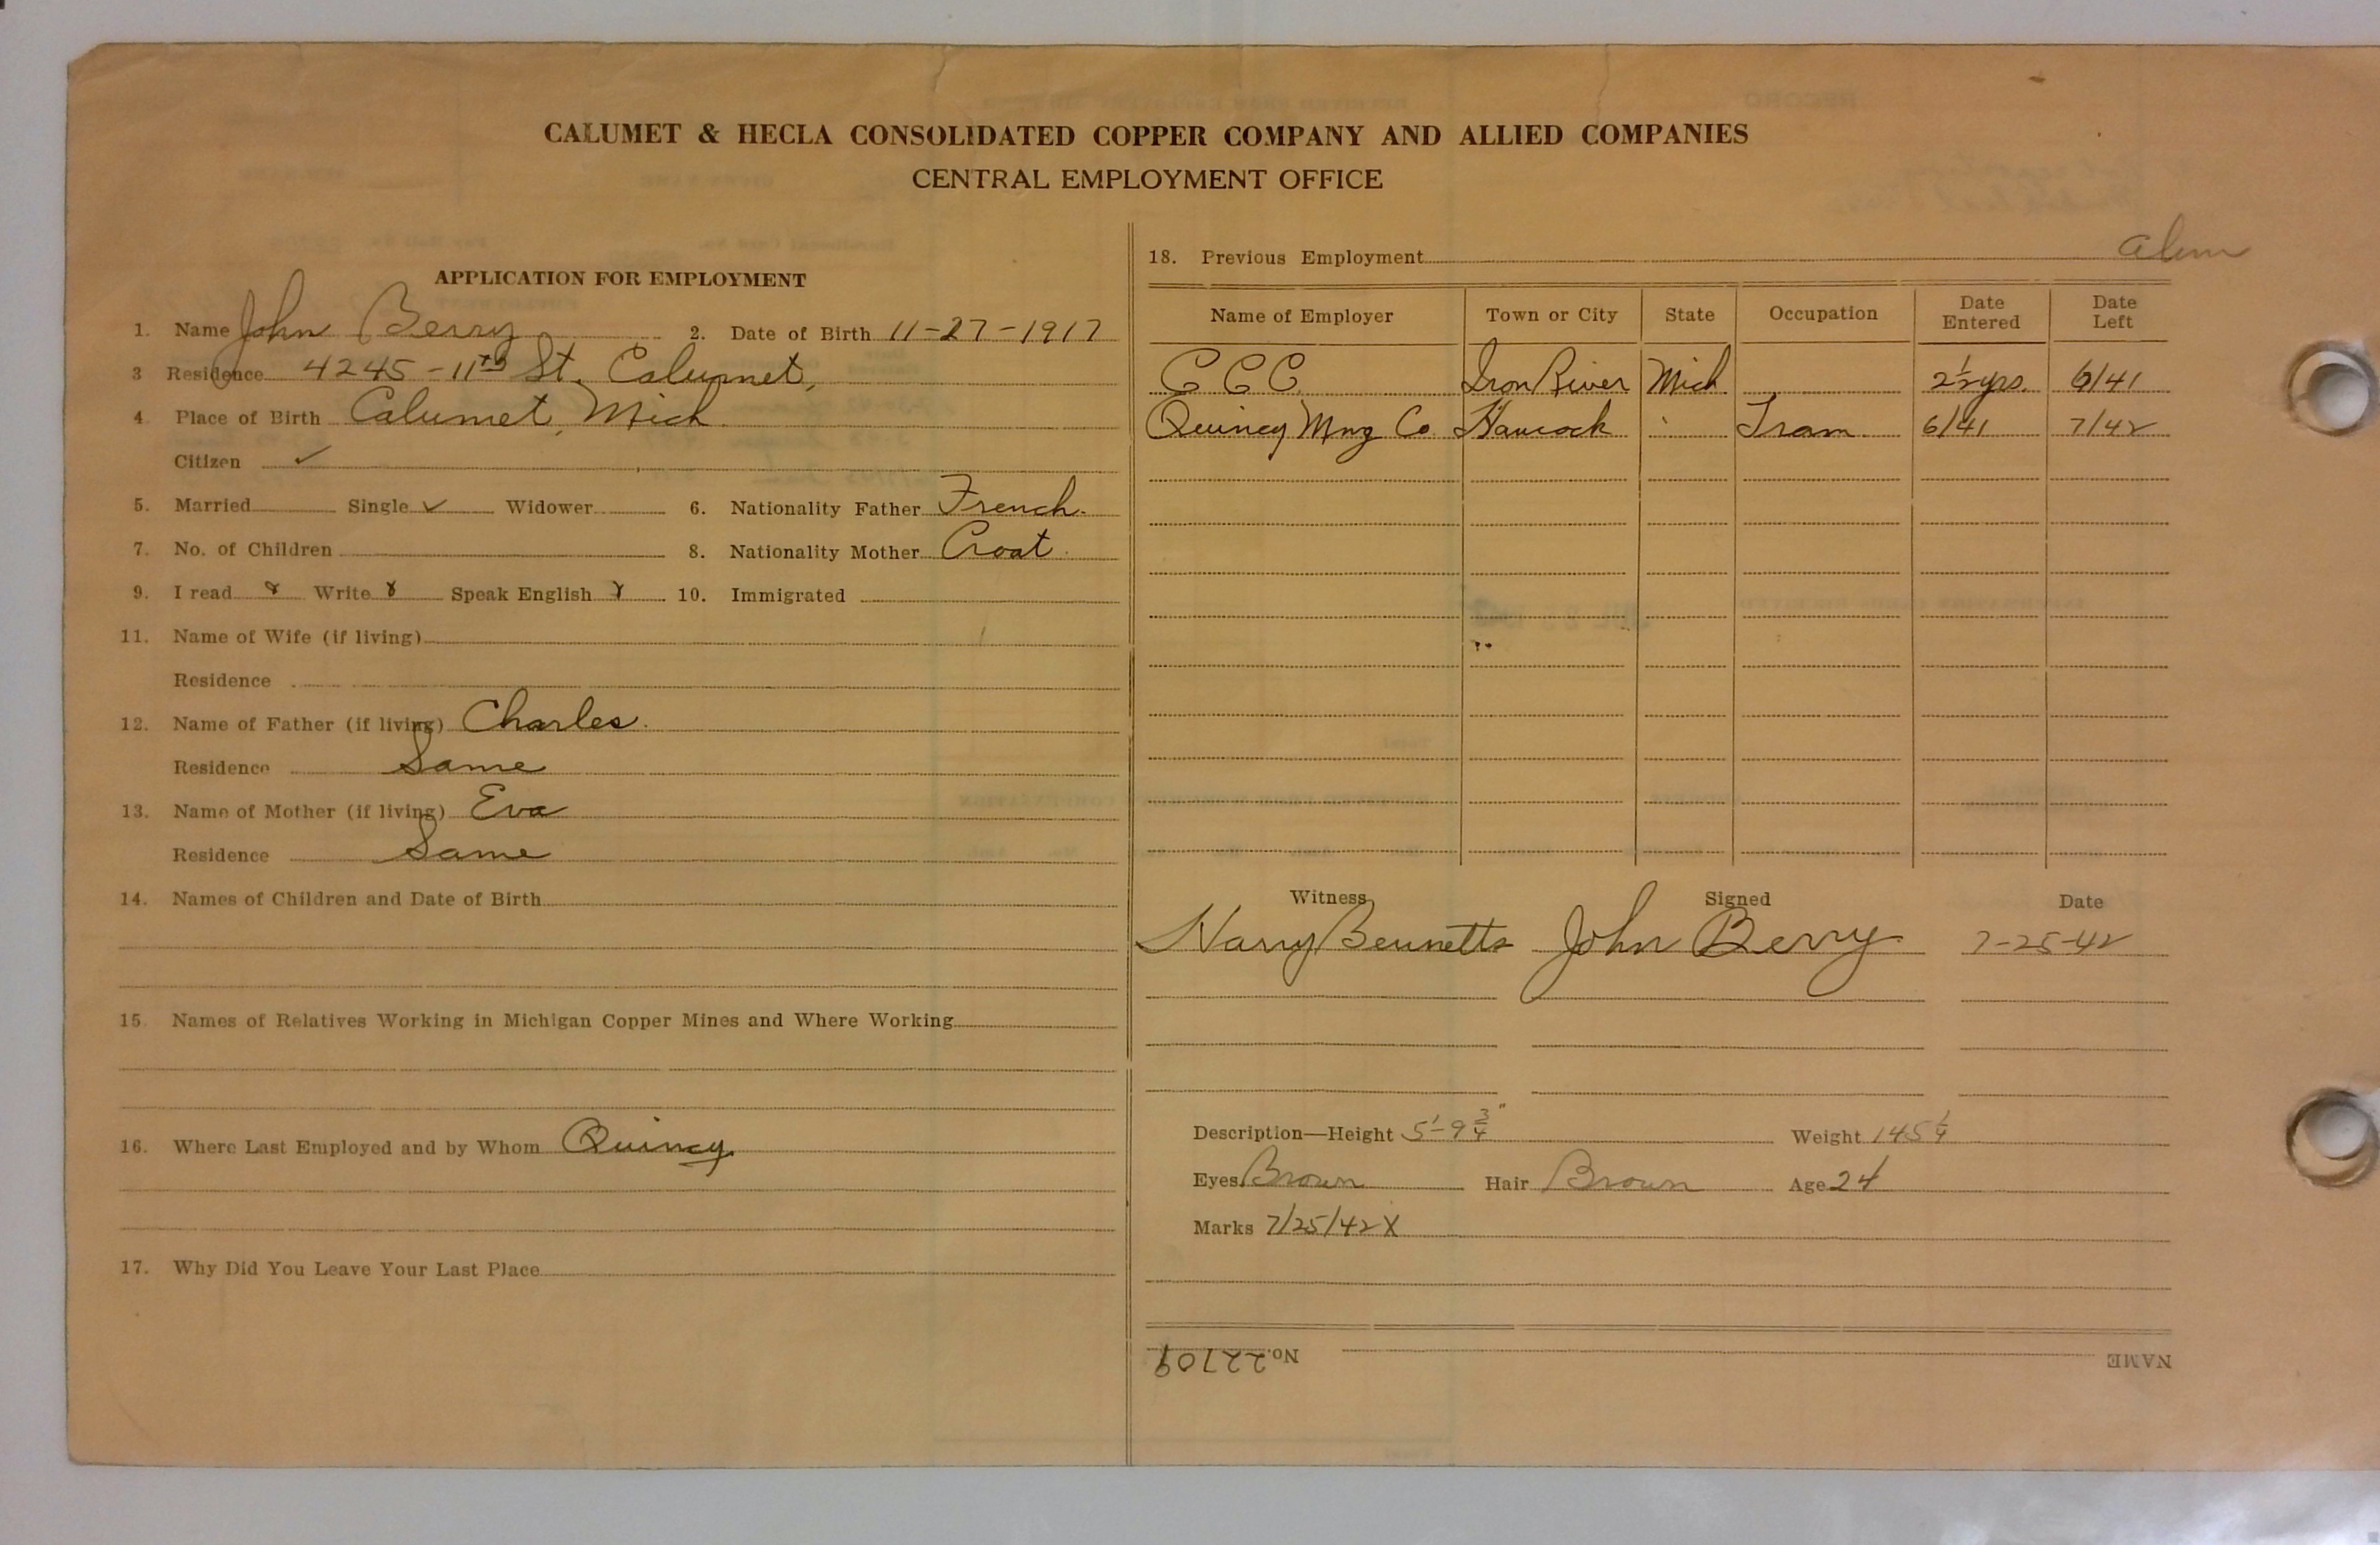 CALUMET & HECLA CONSOLIDATED COPPER COMPANY AND ALLIED COMPANIES
CENTRAL EMPLOYMENT OFFICE
APPLICATION FOR EMPLOYMENT
1. Name John Berry 2. Date of Birth 11-27-1917
3 Residence 4245-11th St. Calumet,
4. Place of Birth Calumet, Mich.
Citizen ✓
5. Married Single ✓ Widower 6. Nationality Father French.
7. No. of Children 8. Nationality Mother Croat.
9. I read Write Speak English 10. Immigrated
11. Name of Wife (if living)
Residence
12. Name of Father (if living) Charles.
Residence Same
13. Name of Mother (if living) Eva
Residence Same
14. Names of Children and Date of Birth
15. Names of Relatives Working in Michigan Copper Mines and Where Working
16. Where Last Employed and by Whom Quincy
17. Why Did You Leave Your Last Place
18. Previous Employment
Name of Employer Town or City State Occupation Date Entered Date Left
C C C. Iron River Mich 2½ yrs. 6/41
Quincy Mng Co. Hancock " Tram 6/41 7/42
Witness Signed Date
Harry Bennetts John Berry 7-25-42
Description—Height 5'-9 3/4" Weight 145 1/4
Eyes Brown Hair Brown Age 24
Marks 7/25/42 X
NAME No. 22709